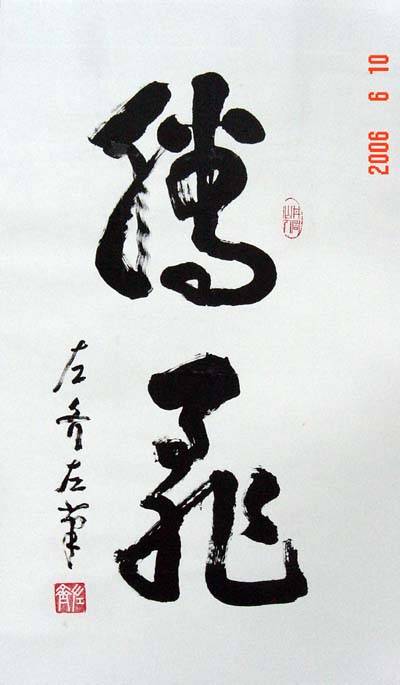 騰飛
左齐左筆
2006 6 10